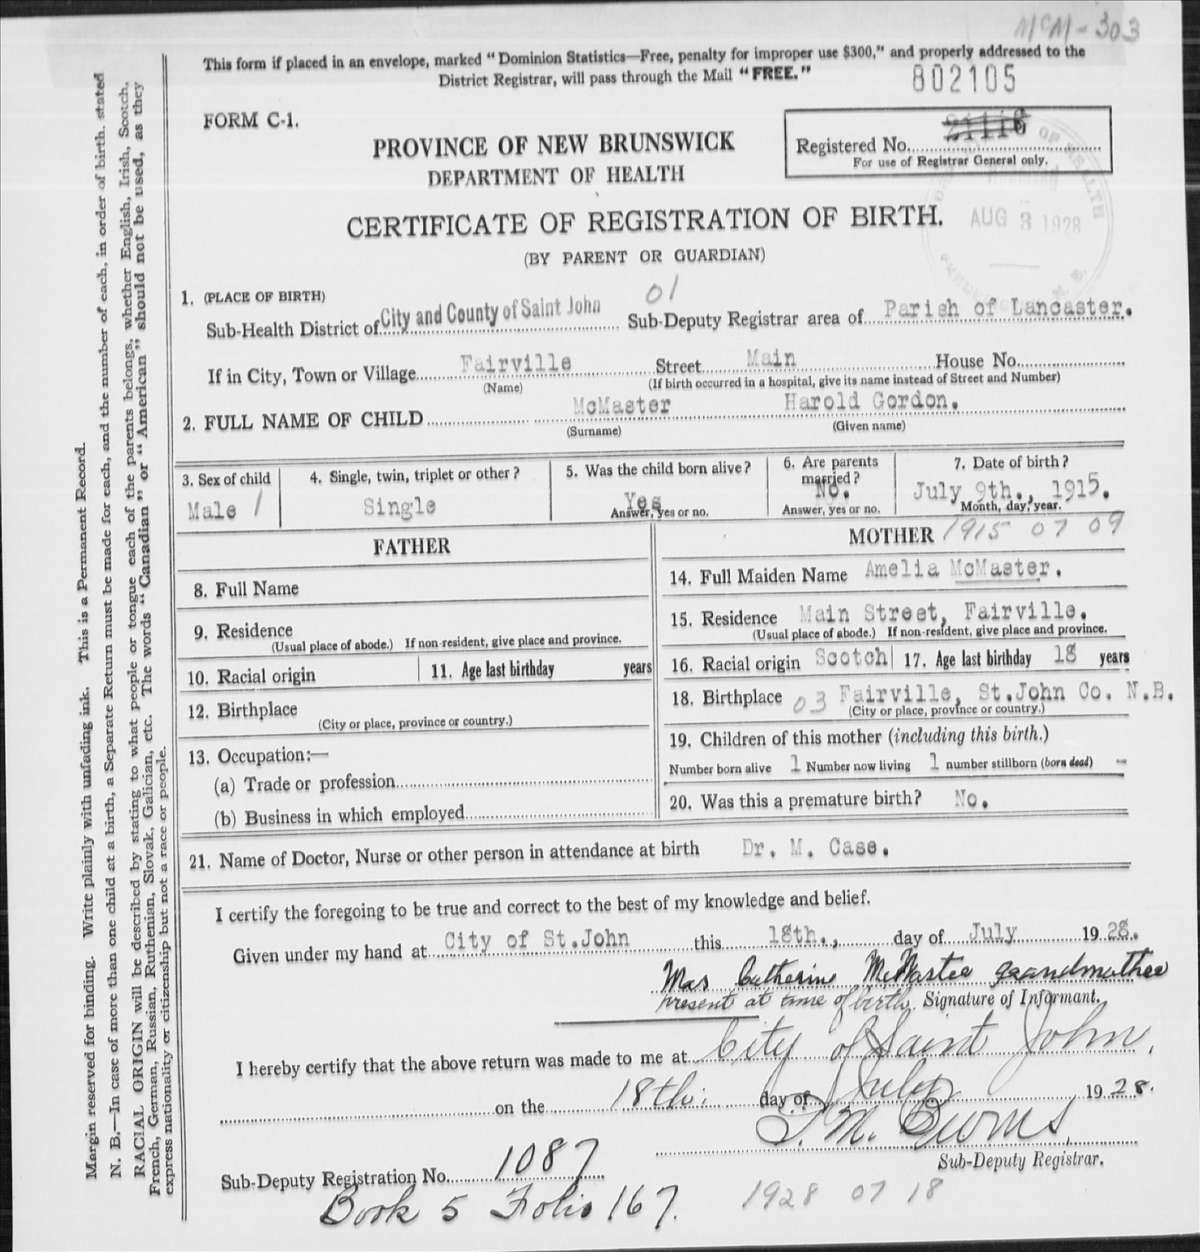 McM-303
This form if placed in an envelope, marked “Dominion Statistics—Free, penalty for improper use $300,” and properly addressed to the
District Registrar, will pass through the Mail “FREE.”
802105
FORM C-1.
PROVINCE OF NEW BRUNSWICK
DEPARTMENT OF HEALTH
Registered No. 21116
For use of Registrar General only.
AUG 3 1928
CERTIFICATE OF REGISTRATION OF BIRTH.
(BY PARENT OR GUARDIAN)
1. (PLACE OF BIRTH) 01
Sub-Health District of City and County of Saint John Sub-Deputy Registrar area of Parish of Lancaster.
If in City, Town or Village Fairville Street Main House No.
(Name) (If birth occurred in a hospital, give its name instead of Street and Number)
2. FULL NAME OF CHILD McMaster Harold Gordon.
(Surname) (Given name)
3. Sex of child 4. Single, twin, triplet or other? 5. Was the child born alive? 6. Are parents married? 7. Date of birth?
Male / Single Yes No. July 9th., 1915.
Answer, yes or no. Answer, yes or no. Month, day, year.
FATHER
8. Full Name
9. Residence
(Usual place of abode.) If non-resident, give place and province.
10. Racial origin 11. Age last birthday years
12. Birthplace
(City or place, province or country.)
13. Occupation:—
(a) Trade or profession
(b) Business in which employed
MOTHER 1915 07 09
14. Full Maiden Name Amelia McMaster.
15. Residence Main Street, Fairville.
(Usual place of abode.) If non-resident, give place and province.
16. Racial origin Scotch 17. Age last birthday 18 years
18. Birthplace 03 Fairville, St.John Co. N.B.
(City or place, province or country.)
19. Children of this mother (including this birth.)
Number born alive 1 Number now living 1 number stillborn (born dead) -
20. Was this a premature birth? No.
21. Name of Doctor, Nurse or other person in attendance at birth Dr. M. Case.
I certify the foregoing to be true and correct to the best of my knowledge and belief.
Given under my hand at City of St.John this 18th., day of July 1928.
Mrs Catherine McMaster grandmother
present at time of birth. Signature of Informant.
I hereby certify that the above return was made to me at City of Saint John,
on the 18th: day of July 1928.
Sub-Deputy Registrar.
Sub-Deputy Registration No. 1087
Book 5 Folio 167. 1928 07 18
Margin reserved for binding. Write plainly with unfading ink. This is a Permanent Record.
N. B.—In case of more than one child at a birth, a Separate Return must be made for each, and the number of each, in order of birth, stated
RACIAL ORIGIN will be described by stating to what people or tongue each of the parents belongs, whether English, Irish, Scotch,
French, German, Russian, Ruthenian, Slovak, Galician, etc. The words “Canadian” or “American” should not be used, as they
express nationality or citizenship but not a race or people.